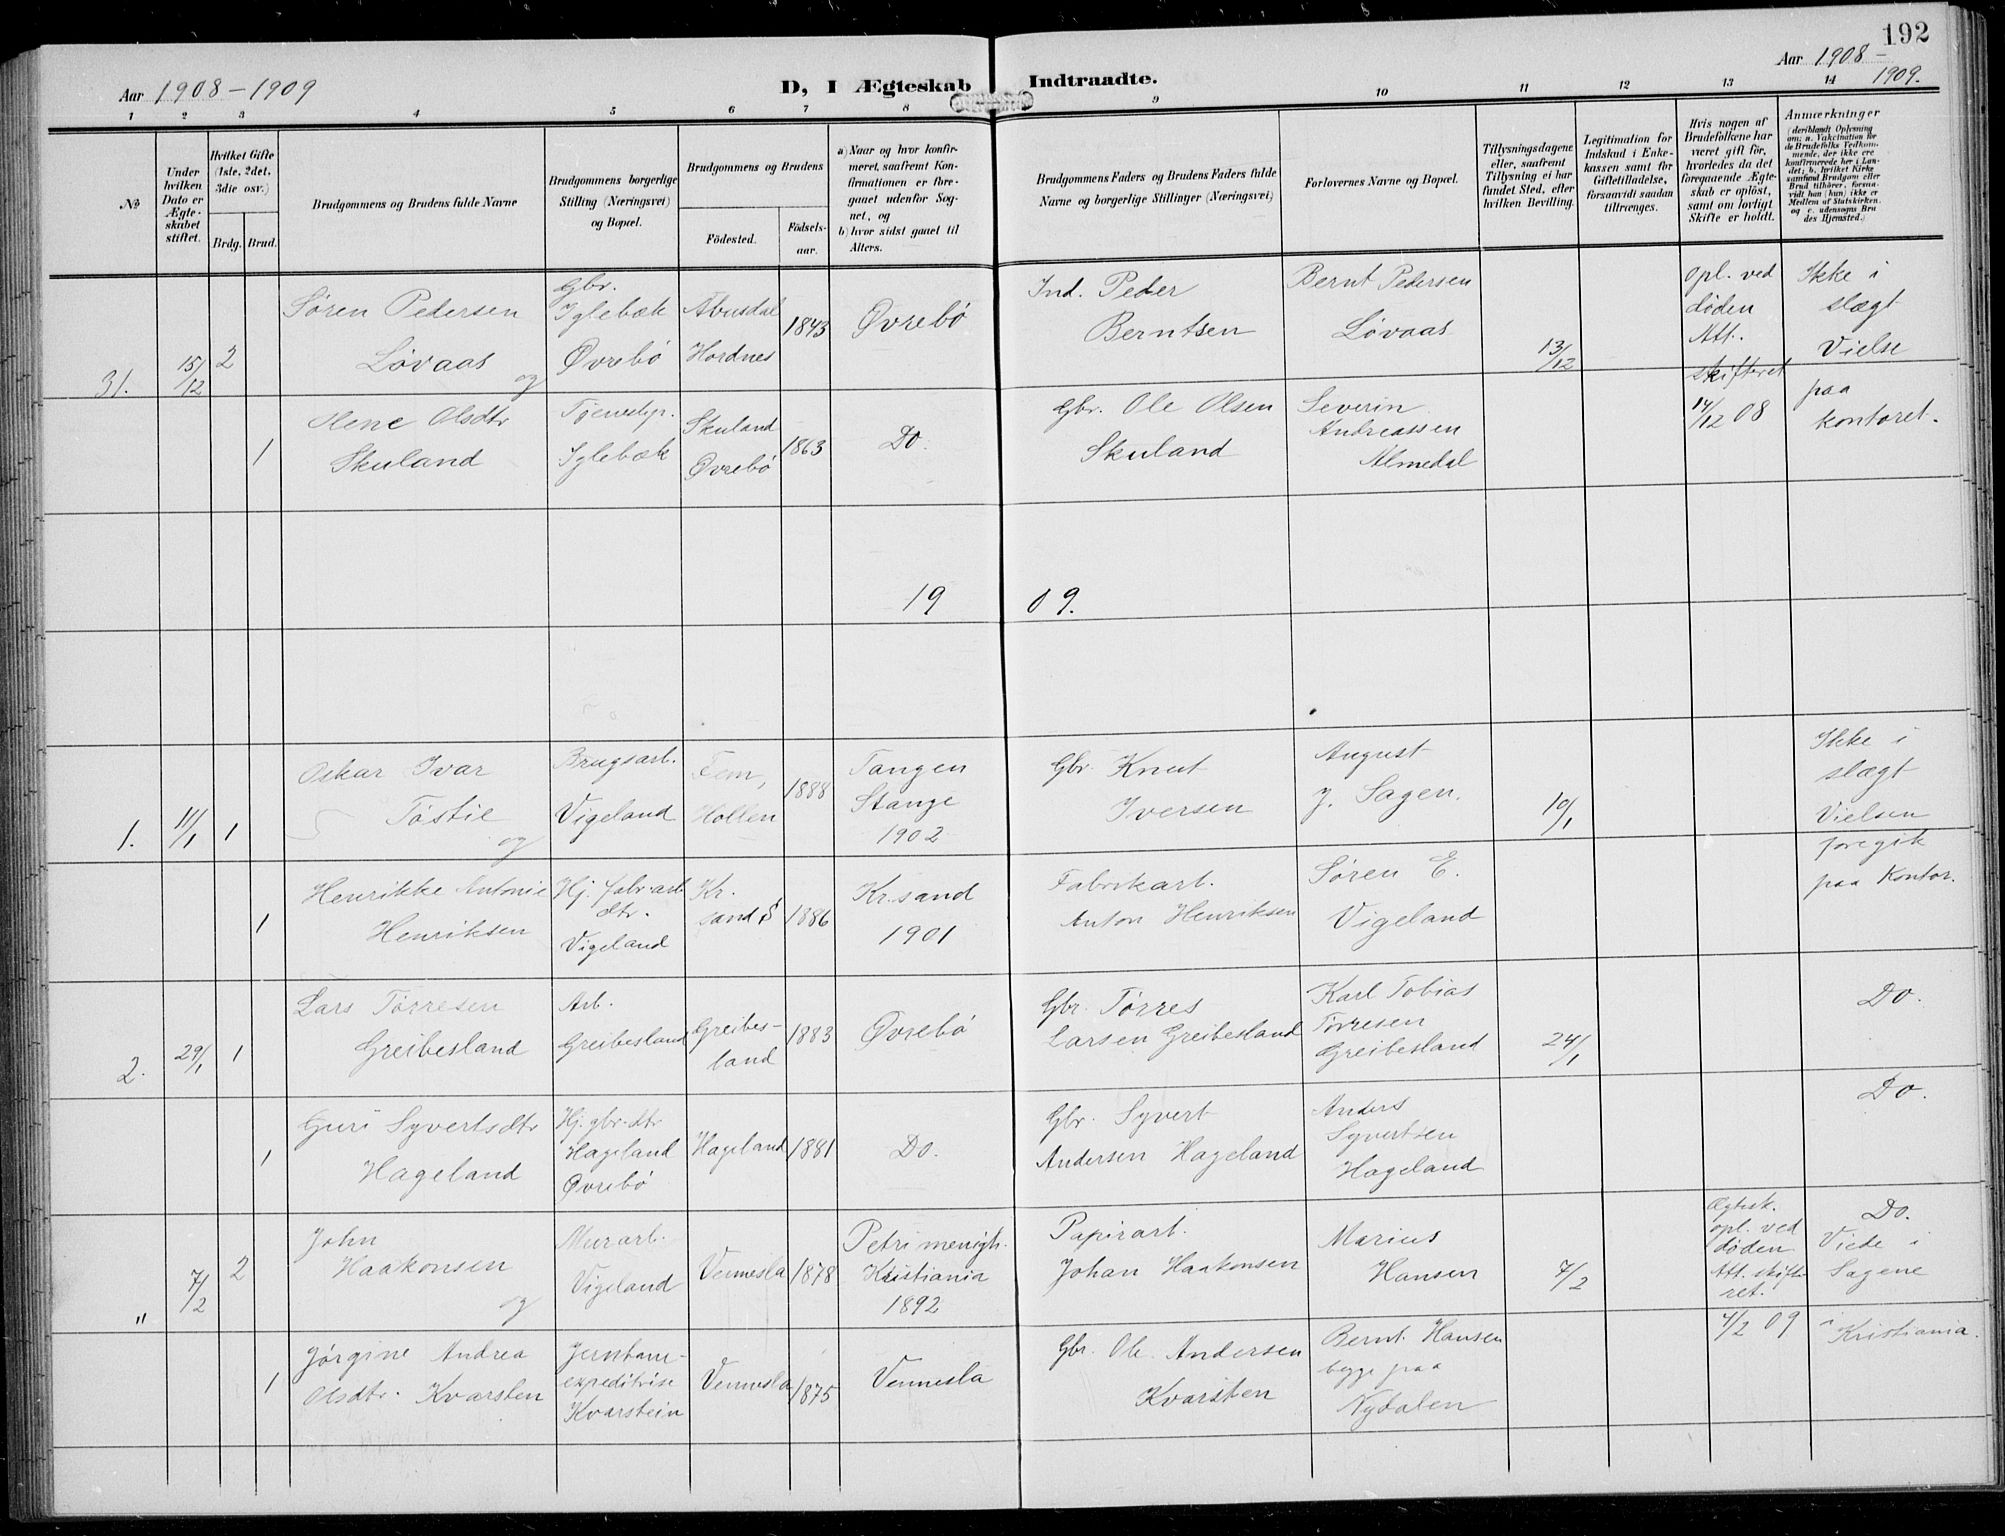 192
Aar 1908-1909
D, I Ægteskab Indtraadte.
Aar 1908-
1909.
1 2 3 4 5 6 7 8 9 10 11 12 13 14
No
Under
hvilken
Dato er
Ægte-
skabet
stiftet.
Hvilket Gifte
(1ste, 2det,
3die osv.)
Brdg. Brud.
Brudgommens og Brudens fulde Navne
Brudgommens borgerlige
Stilling (Næringsvei)
og Bopæl.
Brudgommens og Brudens
Födested.
Födsels-
aar.
a) Naar og hvor konfir-
meret, saafremt Kon-
firmationen er fore-
gaaet udenfor Sog-
net, og
b) hvor sidst gaaet til
Alters.
Brudgommens Faders og Brudens Faders fulde
Navne og borgerlige Stillinger (Næringsvei)
Forlovernes Navne og Bopæl.
Tillysningsdagene
eller, saafremt
Tillysning ei har
fundet Sted, efter
hvilken Bevilling.
Legitimation for
Indskud i Enke-
kassen samt for
Giftetilladelse,
forsaavidt saadan
tiltrænges.
Hvis nogen af
Brudefolkene har
været gift før,
hvorledes da det
foregaaende Ægte-
skab er oplöst,
samt om lovligt
Skifte er holdt.
Anmærkninger
(deriblandt Oplysning
om: a. Vakcination for
de Brudefolks Vedkom-
mende, der ikke ere
konfirmerede her i Lan-
det; b. hvilket Kirke
samfund Brudgom eller
Brud tilhører, forsaa-
vidt han (hun) ikke er
Medlem af Statskirken.
og c. udensogns Bru
des Hjemsted.)
31.
15/12
2
Søren Pedersen
Løvaas
og
Gbr.
Iglebæk
Øvrebö
Abusdal
Hordnes
1843
Øvrebö
Ind. Peder
Berntsen
Bernt Pedersen
Løvaas
13/12
opl. ved
döden
Att.
skifteret
14/12 08
Ikke i
slægt
Vielse
paa
kontoret.
1
Olsdtr
Skuland
Iglebæk
Skuland
Øvrebö
1863
Do.
Gbr. Ole Olsen
Skuland
Severin
Andreassen
Almedal
19 09.
1.
11/1
1
Oskar Ivar
Tøstie
og
Brugsarb.
Vigeland
Hollen
1888
Tangen
Stange
1902
Gbr. Knut
Iversen
August
J. Sagen.
10/1
Ikke i
slægt
Vielsen
foregik
paa Kontor.
1
Henrikke Antonie
Henriksen
Hj. fabr-arb
dtr.
Vigeland
Kr.
sand S
1886
Kr.sand
1901
Fabrikarb.
Anton Henriksen
Søren E.
Vigeland
2.
29/1
1
Lars Tørresen
Greibesland
Arb.
Greibesland
Greibes-
land
1883
Øvrebö
Gbr. Tørres
Larsen Greibesland
Karl Tobias
Tørresen
Greibesland
24/1
Do.
1
Guri Syvertsdtr
Hageland
Hj. gbr-dtr
Hageland
Øvrebö
Hageland
1881
Do.
Gbr. Syvert
Andersen Hageland
Anders
Syvertsen
Hageland
Do.
"
7/2
2
John
Haakonsen
og
Murarb.
Vigeland
Vennesla
1878
Petri menigh.
Kristiania
1892
Papirarb.
Johan Haakonsen
Marius
Hansen
7/2
Ægtesk.
opl. ved
döden
Att. skifte-
ret.
4/2 09
Do.
Viede i
Sagene
i Kristiania.
1
Jørgine Andrea
Olsdtr. Kvarsten
Jernbane-
expeditrise
Kvarstein
Vennesla
1875
Vennesla
Gbr. Ole Andersen
Kvarsten
Bernt Hansen
begge paa
Nydalen